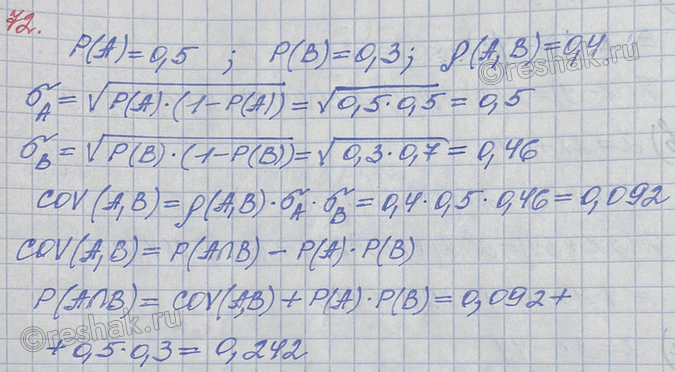 72.
P(A)=0,5 ; P(B)=0,3; ρ(A,B)=0,4
σ_A = √(P(A)·(1-P(A))) = √(0,5·0,5) = 0,5
σ_B = √(P(B)·(1-P(B))) = √(0,3·0,7) = 0,46
COV(A,B)=ρ(A,B)·σ_A·σ_B = 0,4·0,5·0,46=0,092
COV(A,B)= P(A∩B) – P(A)·P(B)
P(A∩B)= COV(A,B)+P(A)·P(B)=0,092+
+0,5·0,3=0,242
reshak.ru